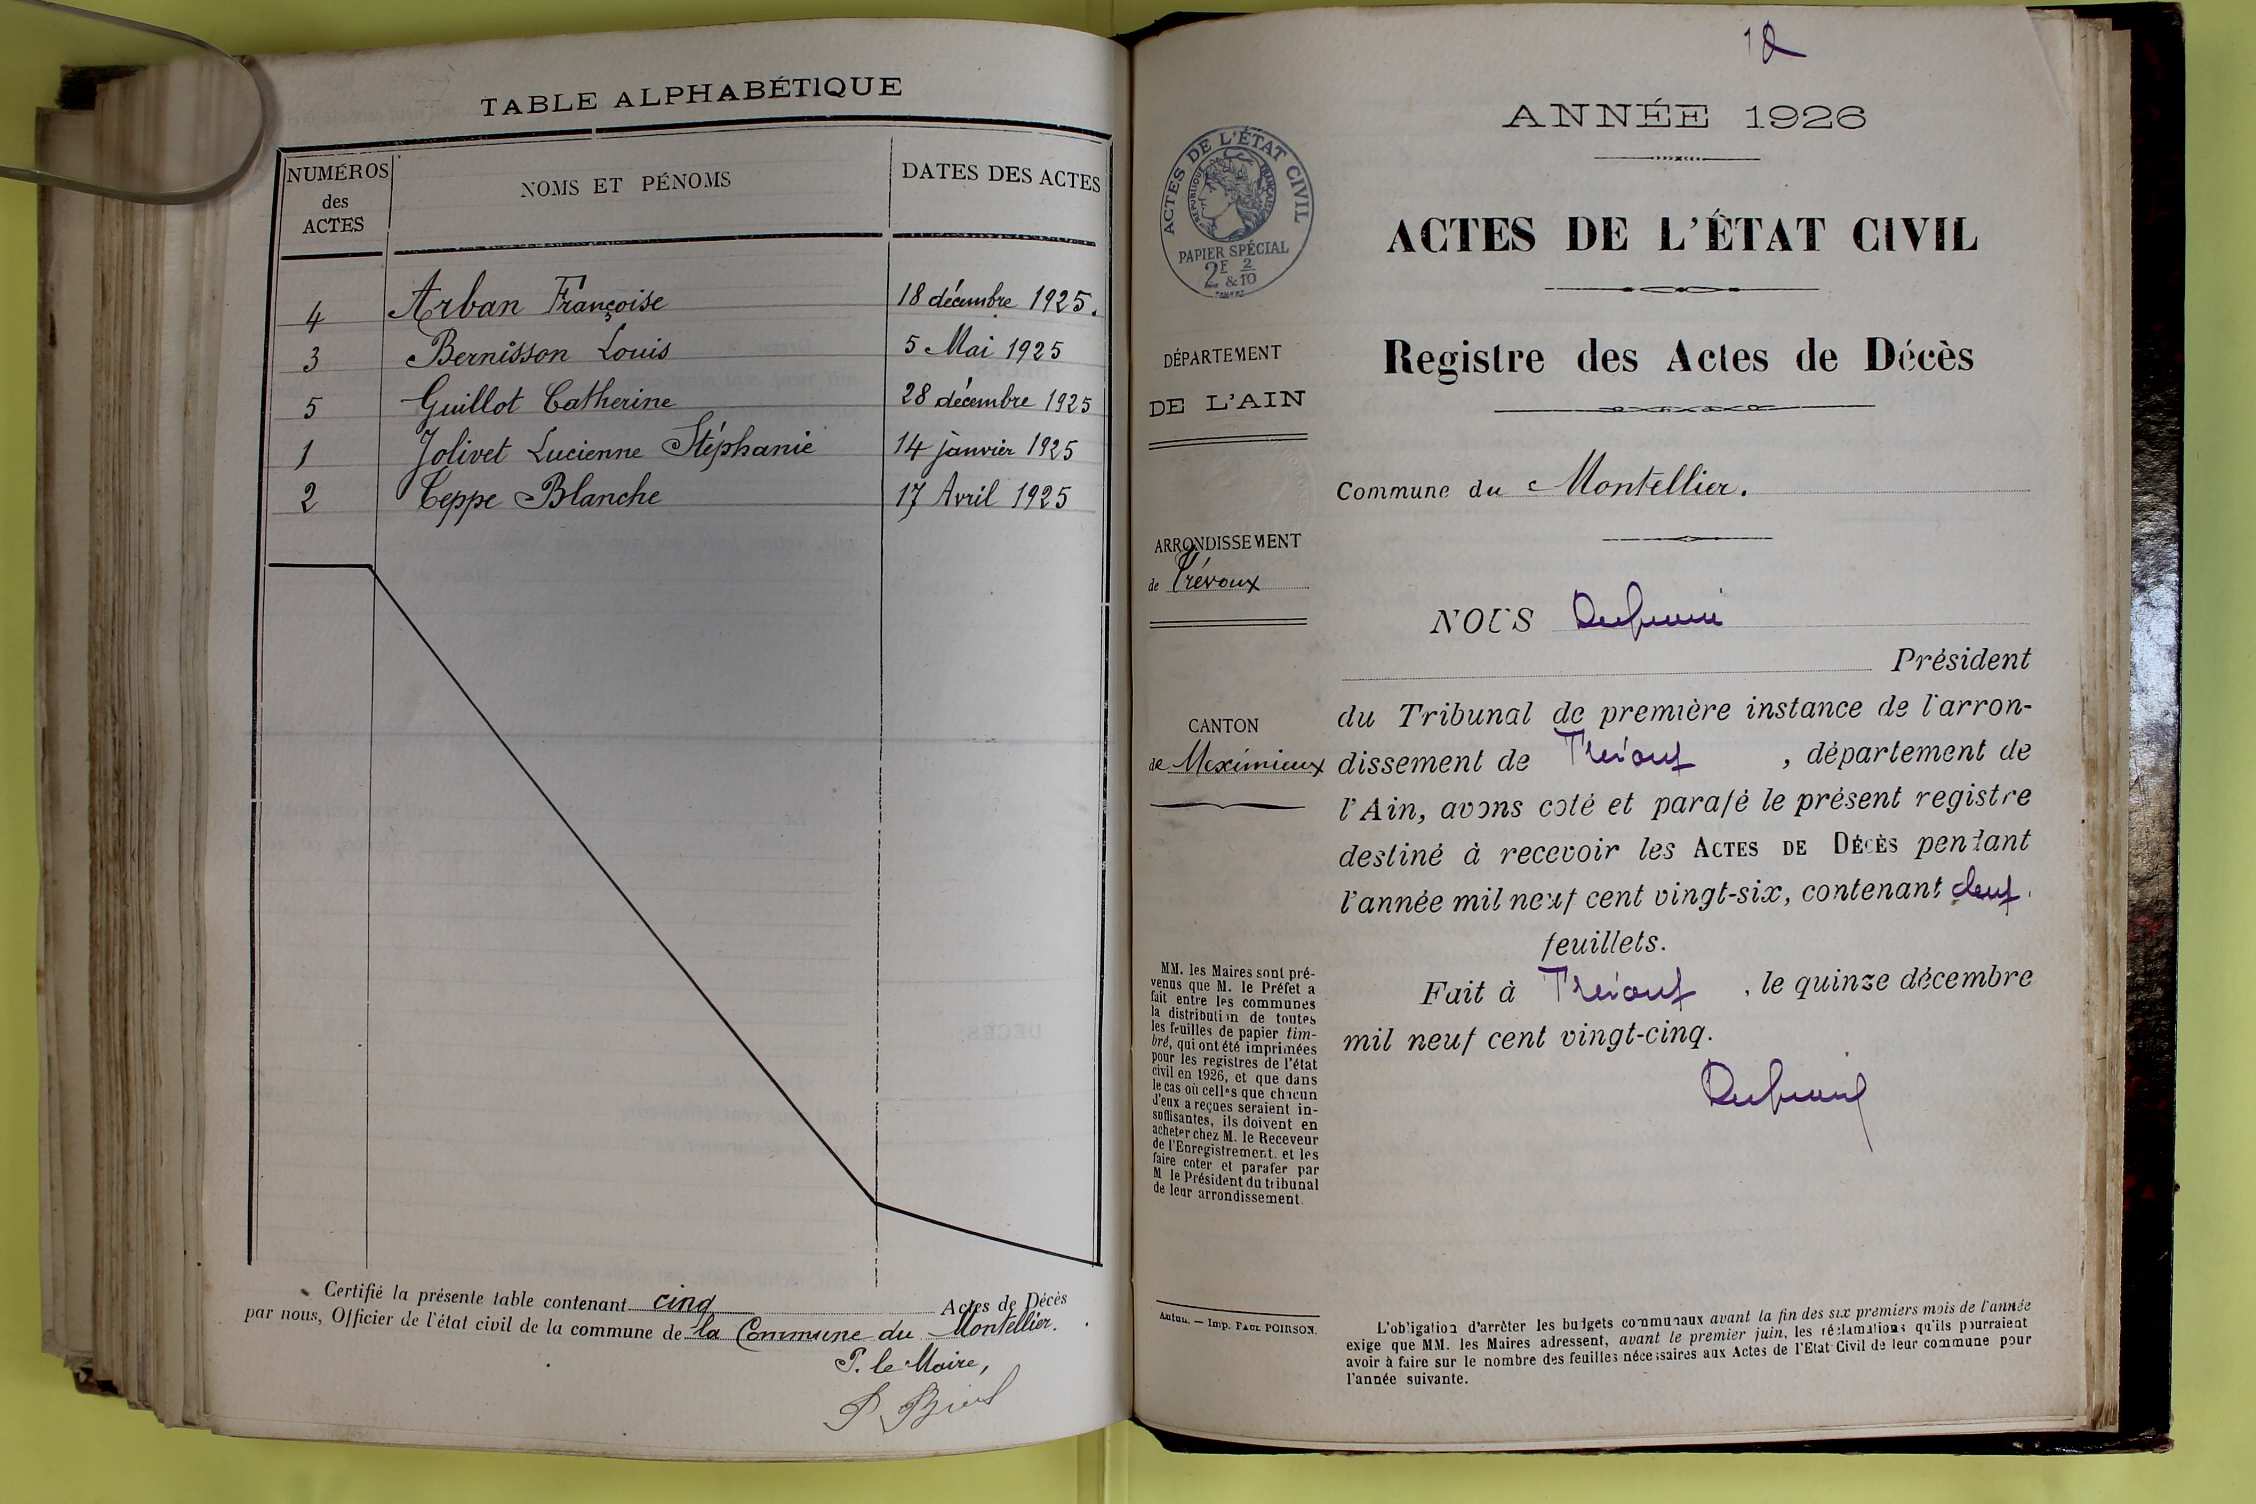 TABLE ALPHABÉTIQUE
NUMÉROS
des
ACTES
NOMS ET PÉNOMS
DATES DES ACTES
4 Arban Françoise 18 décembre 1925.
3 Bernisson Louis 5 Mai 1925
5 Guillot Catherine 28 décembre 1925
1 Jolivet Lucienne Stéphanie 14 janvier 1925
2 Teppe Blanche 17 Avril 1925
Certifié la présente table contenant cinq Actes de Décès
par nous, Officier de l'état civil de la commune de la Commune du Montellier.
P. le Maire,
ANNÉE 1926
ACTES DE L'ÉTAT CIVIL
RÉPUBLIQUE FRANÇAISE
PAPIER SPÉCIAL
2F 2
& 10
DÉPARTEMENT
DE L'AIN
ARRONDISSEMENT
de Trévoux
CANTON
de Meximieux
MM. les Maires sont pré-
venus que M. le Préfet a
fait entre les communes
la distribution de toutes
les feuilles de papier tim-
bré, qui ont été imprimées
pour les registres de l'état
civil en 1926, et que dans
le cas où celles que chacun
d'eux a reçues seraient in-
suffisantes, ils doivent en
acheter chez M. le Receveur
de l'Enregistrement. et les
faire coter et parafer par
M le Président du tribunal
de leur arrondissement.
Autun. — Imp. PAUL POIRSON.
ACTES DE L'ÉTAT CIVIL
Registre des Actes de Décès
Commune du Montellier.
NOUS
Président
du Tribunal de première instance de l'arron-
dissement de Trévoux, département de
l'Ain, avons coté et parafé le présent registre
destiné à recevoir les ACTES DE DÉCÈS pendant
l'année mil neuf cent vingt-six, contenant deux
feuillets.
Fait à Trévoux, le quinze décembre
mil neuf cent vingt-cinq.
L'obligation d'arrêter les budgets communaux avant la fin des six premiers mois de l'année
exige que MM. les Maires adressent, avant le premier juin, les réclamations qu'ils pourraient
avoir à faire sur le nombre des feuilles nécessaires aux Actes de l'Etat-Civil de leur commune pour
l'année suivante.